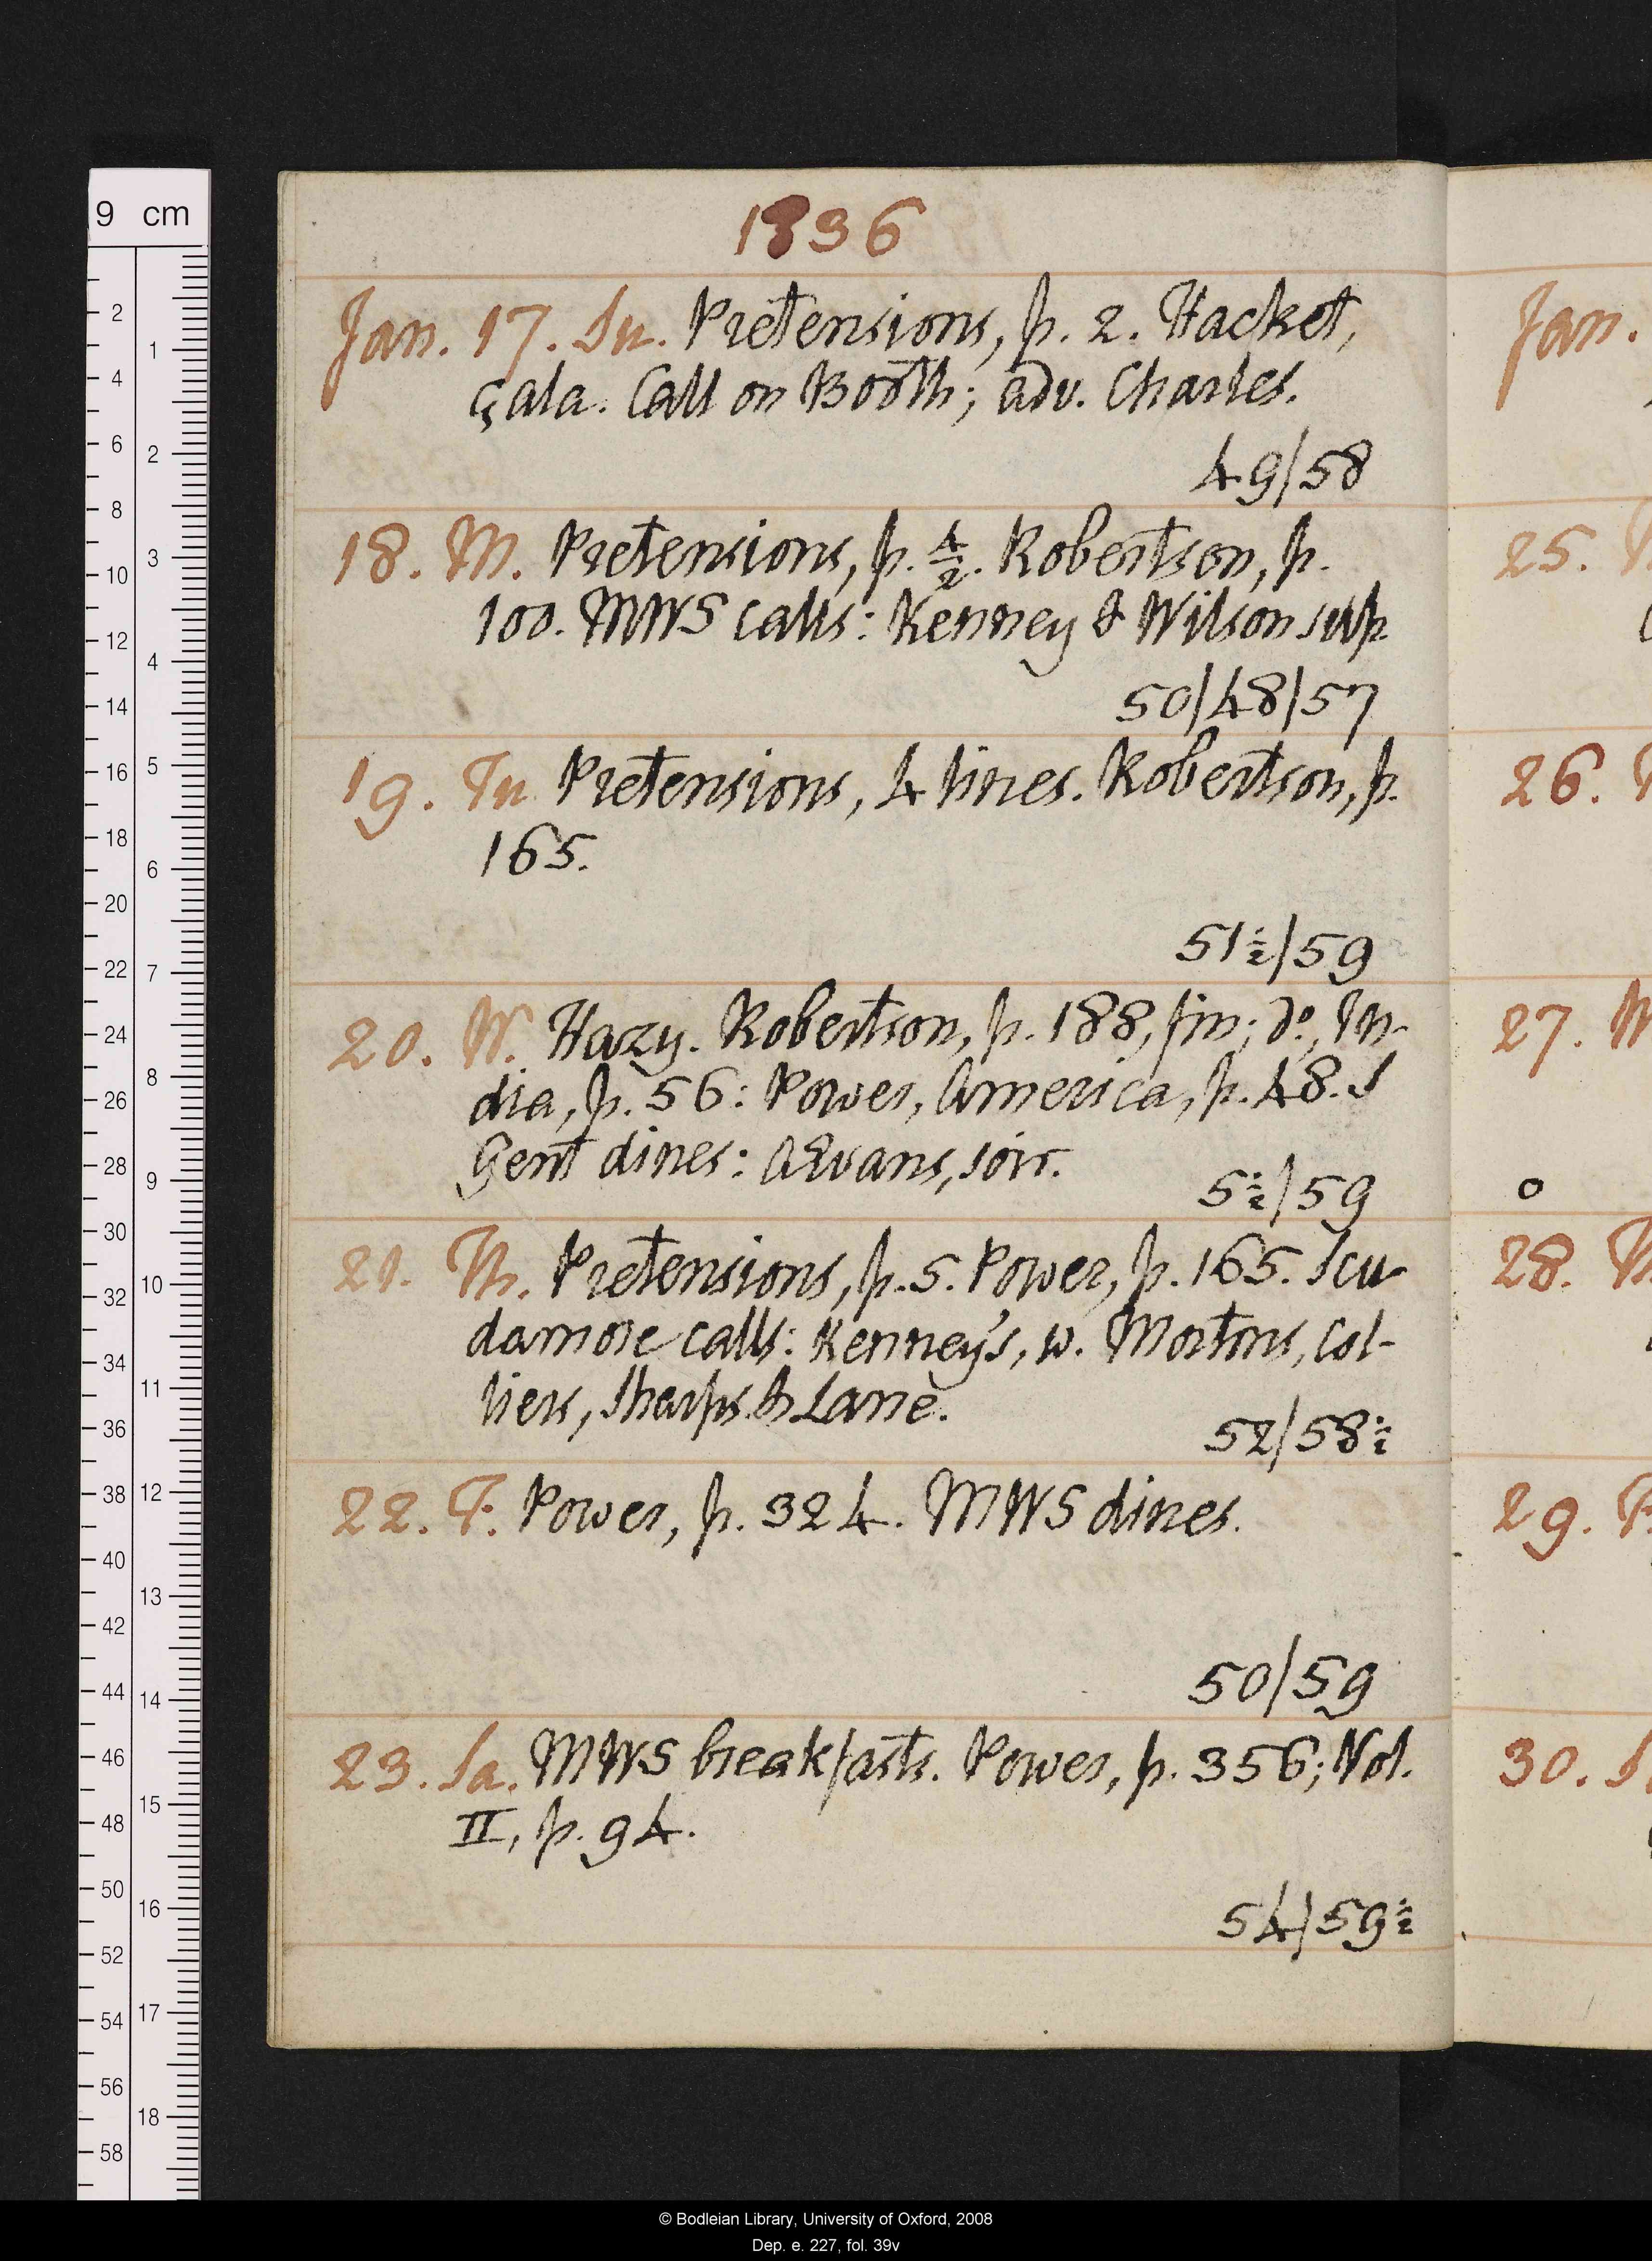 1836
Jan. 17. Su. Pretensions, p. 2. Hacket,
çala. Call on Booth; adv. Charles.
49/58
18. M. Pretensions, p. ½. Robertson, p.
100. MWS calls: Kenney & Wilson sup
50/48/57
19. Tu Pretensions, 4 lines. Robertson, p.
165.
51½/59
20. W. Hazy. Robertson, p. 188, fin; do., In-
dia, p. 56: Power, America, p. 48. J
Gent dines: aEvans, soir.
5½/59
21. Th. Pretensions, p. 5. Power, p. 165. Scu-
damore calls: Kenney's, w. Mortons, Col-
liers, Sharps & Lane.
52/58½
22. F. Power, p. 324. MWS dines.
50/59
23. Sa. MWS breakfasts. Power, p. 356; Vol.
II, p. 94.
54/59½
Jan.
25.
26.
27. W
28. Th
29. F
30. S
9 cm
2
4
6
8
10
12
14
16
18
20
22
24
26
28
30
32
34
36
38
40
42
44
46
48
50
52
54
56
58
1
2
3
4
5
6
7
8
9
10
11
12
13
14
15
16
17
18
© Bodleian Library, University of Oxford, 2008
Dep. e. 227, fol. 39v